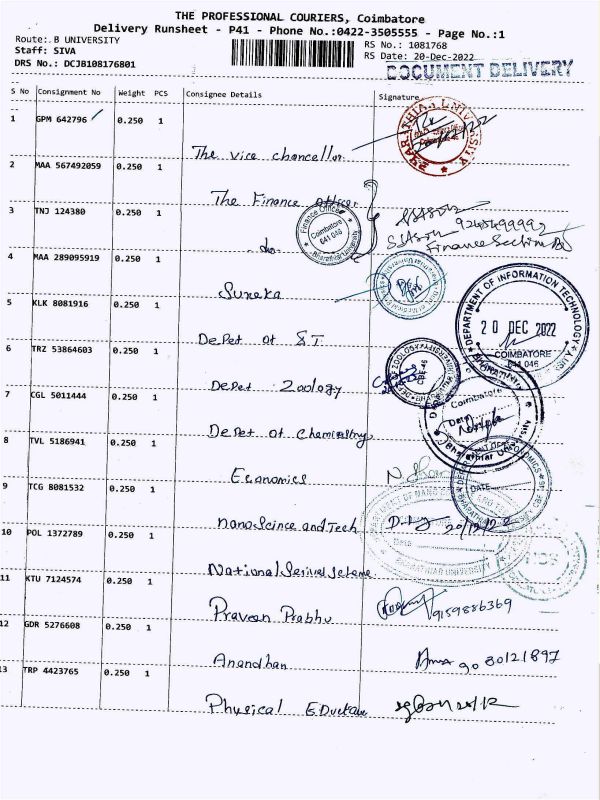 THE PROFESSIONAL COURIERS, Coimbatore
Delivery Runsheet - P41 - Phone No.:0422-3505555 - Page No.:1
Route:.B UNIVERSITY
Staff: SIVA
DRS No.: DCJB108176801
RS No.: 1081768
RS Date: 20-Dec-2022
DOCUMENT DELIVERY
S No Consignment No Weight PCS Consignee Details Signature
1 GPM 642796 0.250 1
The vice chancellor
2 MAA 567492059 0.250 1
The Finance officer
3 TNJ 124380 0.250 1
do
9245499992
Finance Section
Finance Officer
Coimbatore
641 046
Bharathiar University
4 MAA 289095919 0.250 1
Suneka
5 KLK 8081916 0.250 1
Depet of S.T
DEPARTMENT OF INFORMATION TECHNOLOGY
20 DEC 2022
COIMBATORE
641 046
6 TRZ 53864603 0.250 1
Depet Zoology
7 CGL 5011444 0.250 1
Depet of Chemistry
Coimbatore
8 TVL 5186941 0.250 1
Economics
DATE
9 TCG 8081532 0.250 1
nanoscince and Tech
20/12/22
10 POL 1372789 0.250 1
National Serival scheme
11 KTU 7124574 0.250 1
Praveen Prabhu
9159886369
12 GDR 5276608 0.250 1
Anandhan
9080121897
13 TRP 4423765 0.250 1
Physical EDuction